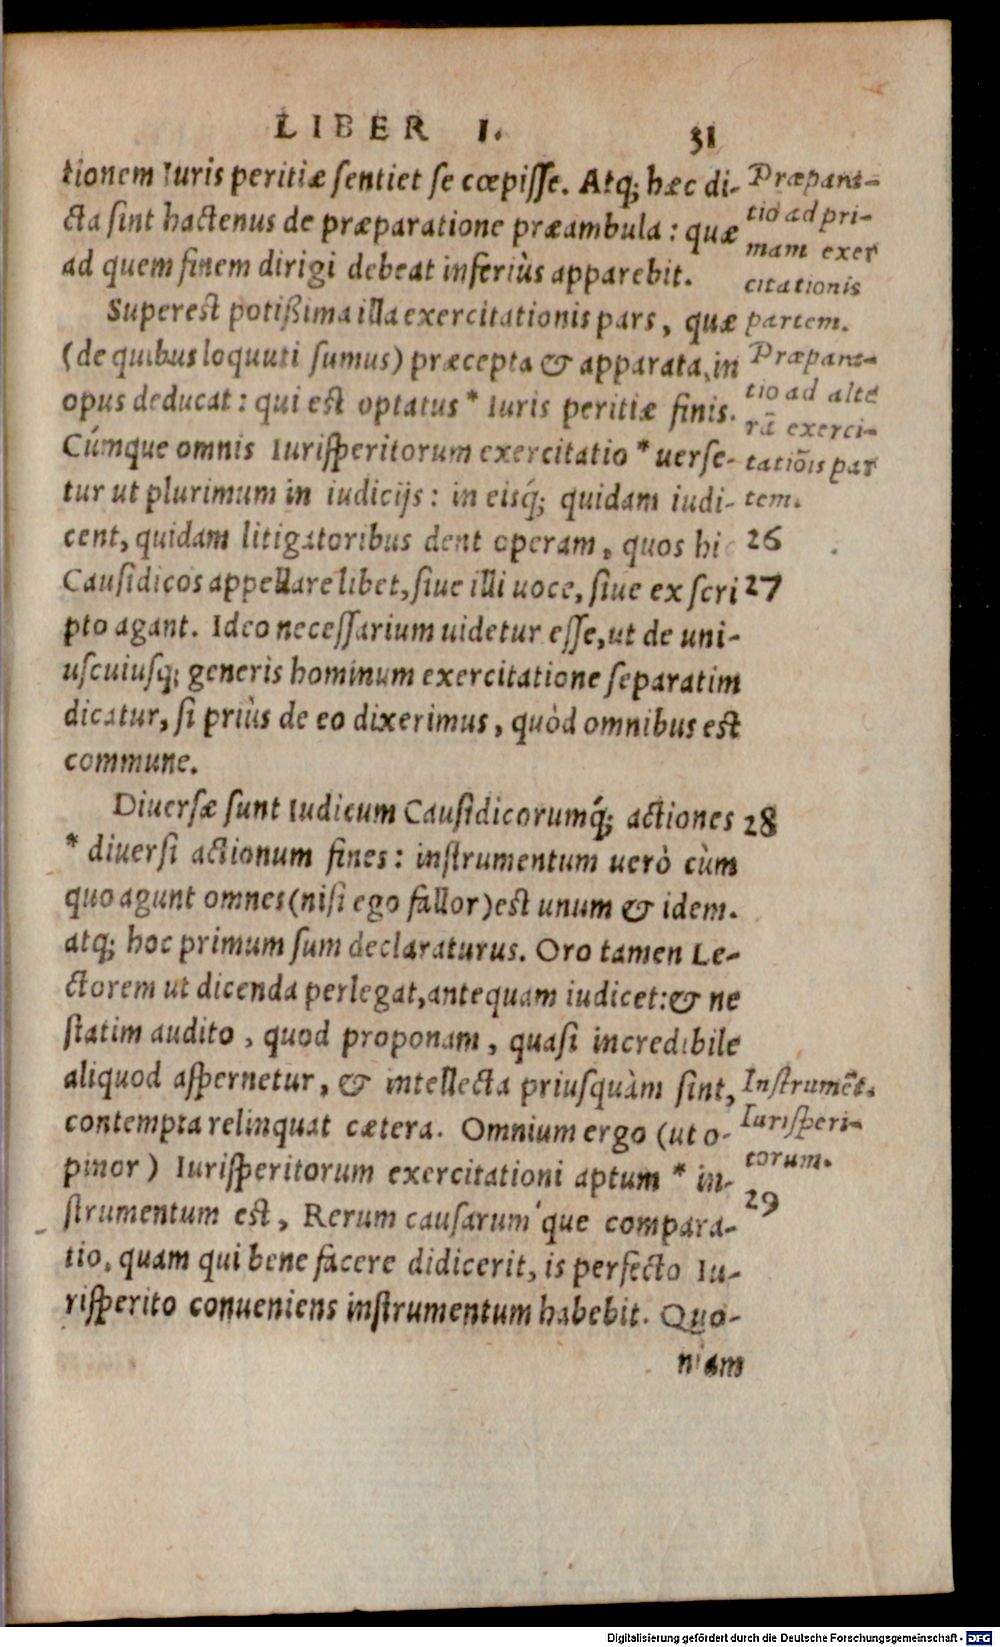 LIBER I. 31
tionem Iuris peritiæ ſentiet ſe cœpiſſe. Atq; hæc di-
cta ſint hactenus de præparatione præambula: quæ
ad quem finem dirigi debeat inferiùs apparebit.
Præpara-
tio ad pri-
mam exer
citationis
partem.
Supereſt potißima illa exercitationis pars, quæ
(de quibus loquuti ſumus) præcepta & apparata, in
opus deducat: qui eſt optatus * Iuris peritiæ finis.
Cúmque omnis Iuriſperitorum exercitatio * uerſe-
tur ut plurimum in iudicijs: in eisq́; quidam iudi-
cent, quidam litigatoribus dent operam, quos hic
Cauſidicos appellare libet, ſiue illi uoce, ſiue ex ſcri
pto agant. Ideo neceſſarium uidetur eſſe, ut de uni-
uſcuiuſq; generis hominum exercitatione ſeparatim
dicatur, ſi priùs de eo dixerimus, quòd omnibus eſt
commune.
Præpara-
tio ad alte
rã exerci-
tatiõis par
tem.
26
27
Diuerſæ ſunt Iudicum Cauſidicorumq́; actiones
* diuerſi actionum fines: inſtrumentum uerò cùm
quo agunt omnes (niſi ego fallor) eſt unum & idem.
atq; hoc primum ſum declaraturus. Oro tamen Le-
ctorem ut dicenda perlegat, antequam iudicet: & ne
ſtatim audito, quod proponam, quaſi incredibile
aliquod aſpernetur, & intellecta priuſquàm ſint,
contempta relinquat cætera. Omnium ergo (ut o-
pinor) Iuriſperitorum exercitationi aptum * in-
ſtrumentum eſt, Rerum cauſarum'que compara-
tio, quam qui bene facere didicerit, is perfecto Iu-
riſperito conueniens inſtrumentum habebit. Quo-
28
Inſtrumẽt.
Iuriſperi-
torum.
29
niam
Digitalisierung gefördert durch die Deutsche Forschungsgemeinschaft - DFG